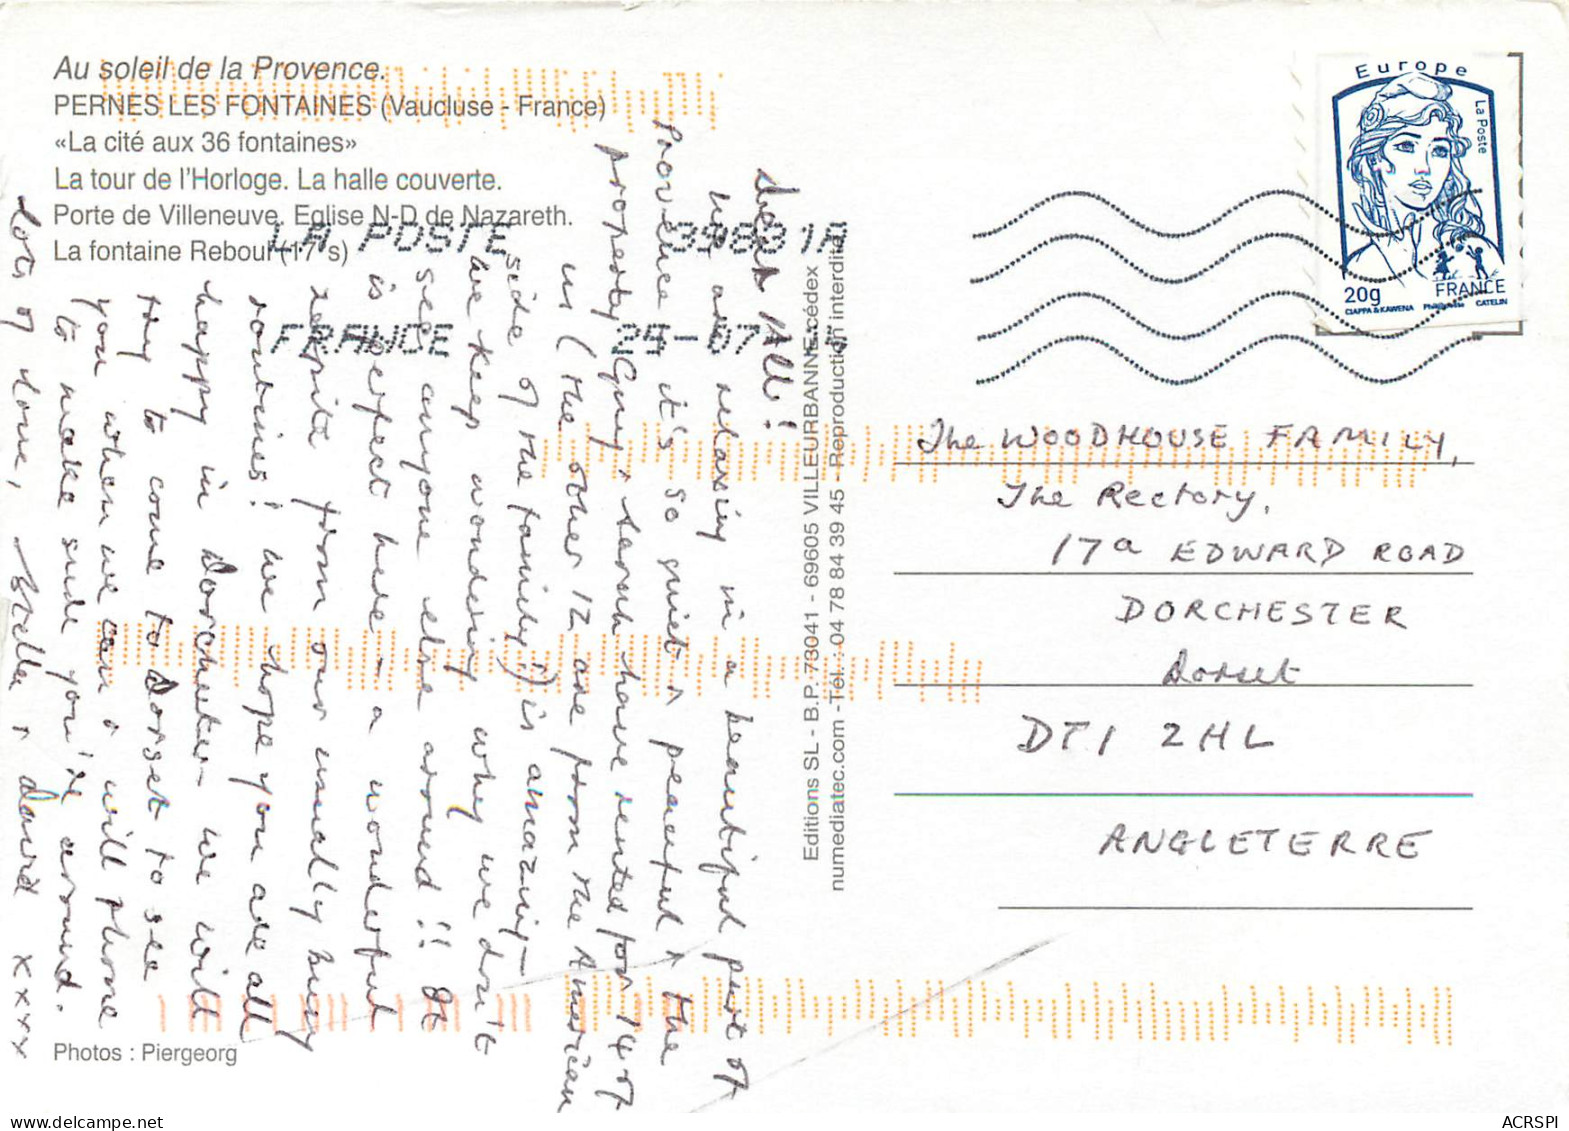 Au soleil de la Provence.
PERNES LES FONTAINES (Vaucluse - France)
«La cité aux 36 fontaines»
La tour de l'Horloge. La halle couverte.
Porte de Villeneuve. Eglise N-D de Nazareth.
La fontaine Reboul (17°s)
LA POSTE 39831A
FRANCE 24-07
Dear All!
We are relaxing in a beautiful part of
Provence it's so quiet & peaceful & the
property Guy & Sarah have rented for 14 of
us (the other 12 are from the American
side of the family!) is amazing -
we keep wondering why we don't
see anyone else around!! It
is perfect here - a wonderful
respite from our usually busy
routines! We hope you are all
happy in Dorchester - we will
try to come to Dorset to see
you when we can & will phone
to make sure you're around.
Lots of love, Stella & David xxxx
Photos : Piergeorg
Editions SL - B.P. 73041 - 69605 VILLEURBANNE cédex
numediatec.com - Tel. : 04 78 84 39 45 - Reproduction interdite
Europe
La Poste
20g FRANCE
CIAPPA & KAWENA CATELIN
The WOODHOUSE FAMILY,
The Rectory,
17a EDWARD ROAD
DORCHESTER
Dorset
DT1 2HL
ANGLETERRE
ACRSPI